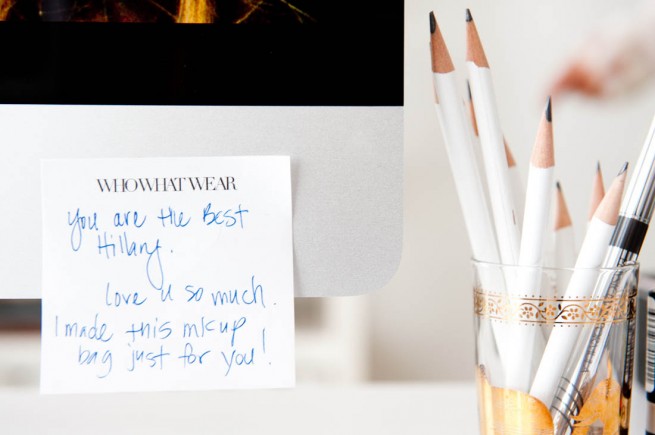 WHOWHATWEAR
You are the Best
Hillary.
Love u so much.
I made this mkup
bag just for you!